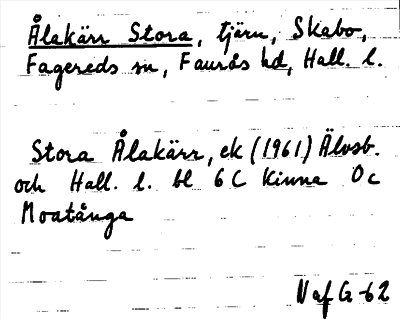 Ålakärr Stora, tjärn, Skabo,
Fagereds sn, Faurås hd, Hall. l.
Stora Ålakärr, ek (1961) Älvsb.
och Hall. l. bl 6 C Kinna 0c
Moatånga
N af G -62